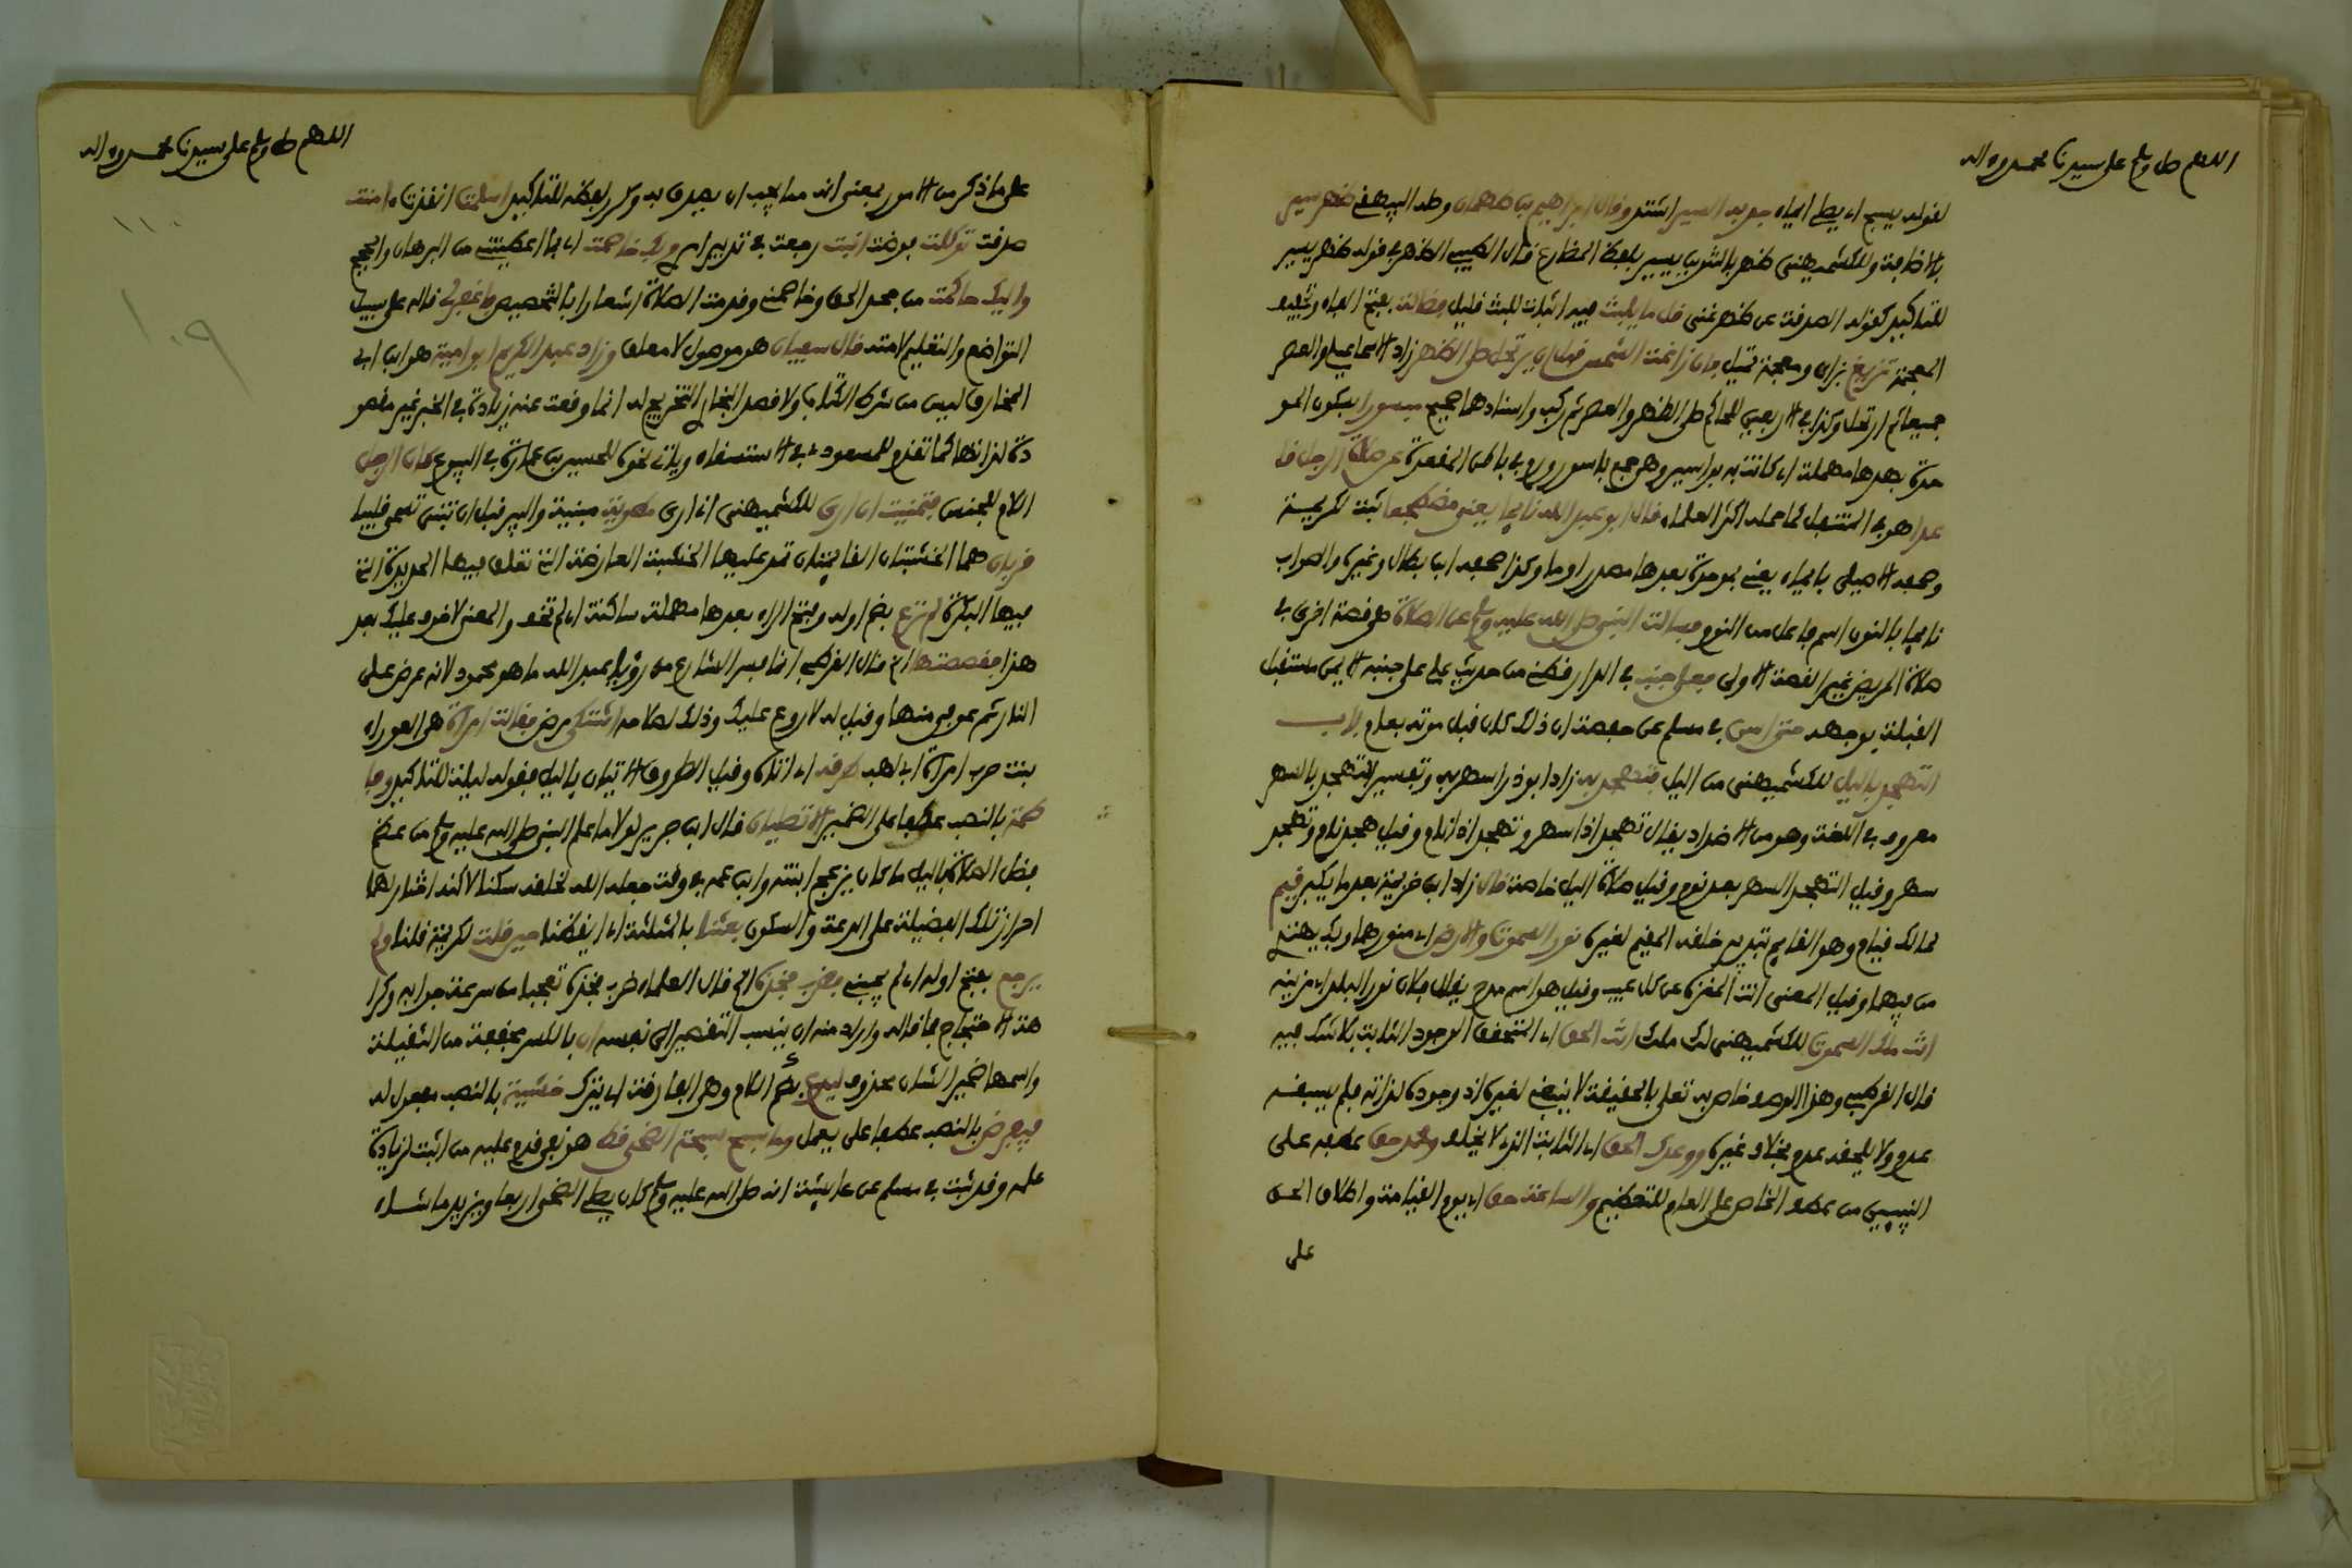 اللهم صل وسلم على سيدنا محمد وءاله
لقوله يسبح اي يصلي ايماء جد به السير اشتد وقال ابراهيم بن طهمان وصله البيهقي ظهر سير
بالاضافة وللكشميهني ظهر بالتنوين يسير بلفظ المضارع قال الطيبي الظهر في قوله ظهر يسير
للتاكيد كقوله الصدقة عن ظهر غنى قل ما يلبث فيه اثبات للبث قليل بفتح الفاء وتخفيف
المعجمة تزيغ بزاي ومعجمة تميل فان زاغت الشمس قبل ان يرتحل صلى الظهر زاد الاسماعيلي والعصر
جميعا ثم ارتحل وكذا في الاربعين للحاكم صلى الظهر والعصر ثم ركب واسنادها صحيح مبسورا بسكون المو
حدة بعدها مهملة اي كانت به بواسير وهي جمع باسور ورم في باطن المقعدة عن صلاة الرجل قا
عدا هو في المتنفل كما حمله اكثر العلماء قال ابو عبد الله نائما يعني مضطجعا ثبت لكريمة
وصحفه الاصيلي بايماء يعني بموحدة بعدها مصدر اوما وكذا صحفه ابن بطال وغيره والصواب
نائما بالنون اسم فاعل من النوم فسالت النبي صلى الله عليه وسلم عن الصلاة هي قصة اخرى في
صلاة المريض غير القصة الاولى فعلى جنب في الدارقطني من حديث علي على جنبه الايمن مستقبل
القبلة بوجهه حتى اسن في مسلم عن حفصة ان ذلك كان قبل موته بعام باب
التهجد بالليل للكشميهني من الليل فتهجد به زاد ابو ذر اسهر به وتفسير التهجد بالسهر
معروف في اللغة وهو من الاضداد يقال تهجد اذا سهر وتهجد اذا نام وقيل هجد نام وتهجد
سهر وقيل التهجد السهر بعد نوم وقيل صلاة الليل خاصة قال زاد ابن خزيمة بعد ما يكبر قيم
لمالك قيام وهو القائم بتدبير خلقه المقيم لغيره نور السموت والارض اي منورهما وبك يهتدي
من فيهما وقيل المعنى انت المنزه عن كل عيب وقيل هو اسم مدح يقال فلان نور البلد اي مزينه
انت ملك السموت للكشميهني لك ملك انت الحق اي المتحقق الوجود الثابت بلا شك فيه
قال القرطبي وهذا الوصف خاص به تعلى بالحقيقة لا ينبغي لغيره اذ وجوده لذاته فلم يسبقه
عدم ولا يلحقه عدم بخلاف غيره ووعدك الحق اي الثابت الذي لا يخلف ومحمد حق عطفه على
النبيين من عطف الخاص على العام للتعظيم والساعة حق اي يوم القيامة واطلاق الحق
على
اللهم صل وسلم على سيدنا محمد وءاله
١١٠
١٠٩
على ما ذكر من الامور بمعنى انه مما يجب ان يصدق به وكرر لفظه للتاكيد اسلمت انقدت ءامنت
صدقت توكلت فوضت انبت رجعت في تدبير امري وبك خاصمت اي بما اعطيتني من البرهان والحجج
واليك حاكمت من جحد الحق وخاصمني وقدمت الصلاة اشعارا بالتخصيص فاغفر لي قاله على سبيل
التواضع والتعليم لامته قال سفيان هو موصول لا معلق وزاد عبد الكريم ابو امية هو ابن ابي
المخارق ليس من شرط الكتاب ولا قصد البخاري التخريج له انما وقعت عنه زيادة في الخبر غير مقصو
دة لذاتها كما تقدم للمسعودي في الاستسقاء وياتي نحوه للحسين بن عمارة في البيوع كان الرجل
اللام للجنس فتمنيت ان ارى للكشميهني اني ارى مطوية مبنية والبير قبل ان تبنى تسمى قليبا
قرنان هما الخشبتان القائمتان تمد عليها الخشبة العارضة التي تعلق فيها الحديدة التي
فيها البكرة لم ترع بضم اوله وفتح الراء بعدها مهملة ساكنة اي لم تخف والمعنى لا خوف عليك بعد
هذا فقصصتها الخ قال القرطبي انما فسر الشارع من رؤيا عبد الله ما هو محمود لانه عرض على
النار ثم عوفي منها وقيل له لا روع عليك وذلك لصلاحه اشتكى مرض فقالت امراة هي العوراء
بنت حرب امراة ابي لهب طرقه اي اتاه وقيل الطروق الاتيان بالليل فقوله ليلة للتاكيد وفا
طمة بالنصب عطفا على الضمير الا تصليان قال ابن جرير لولا ما علم النبي صلى الله عليه وسلم من عظم
فضل الصلاة بالليل ما كان يزعج ابنته وابن عمه في وقت جعله الله لخلقه سكنا لاكنه اختار لهما
احراز تلك الفضيلة على الدعة والسكون بعثنا بالمثلثة اي ايقظنا حين قلت لكريمة قلنا ولم
يرجع بفتح اوله اي لم يجبني يضرب فخذه الخ قال العلماء ضرب فخذه تعجبا من سرعة جوابه وكرا
هة الاحتجاج بما قاله واراد منه ان ينسب التقصير الى نفسه ان بالكسر مخففة من الثقيلة
واسمها ضمير الشان محذوف ليدع بفتح اللام وهي الفارقة اي يترك خشية بالنصب مفعول له
فيفرض بالنصب عطفا على يعمل وما سبح سبحة الضحى قط هو نفي قدم عليه من اثبت لزيادة
علمه وقد ثبت في مسلم عن عايشة انه صلى الله عليه وسلم كان يصلي الضحى اربعا ويزيد ما شاء